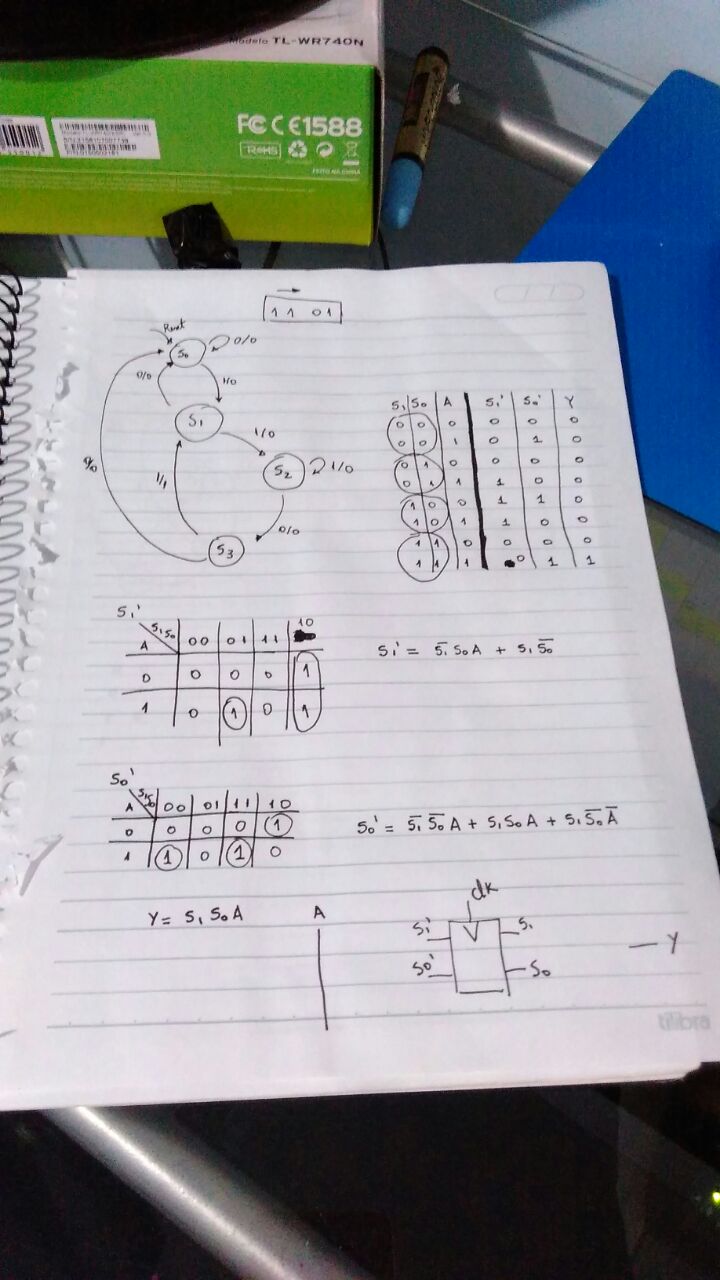 Modelo TL-WR740N
FC CE1588
RoHS
FEITO NA CHINA
1 1 0 1
Reset
S0
0/0
0/0
1/0
S1
1/0
S2
1/0
0/0
1/1
0/0
S3
S1 S0 A S1' S0' Y
0 0 0 0 0 0
0 0 1 0 1 0
0 1 0 0 0 0
0 1 1 1 0 0
1 0 0 1 1 0
1 0 1 1 0 0
1 1 0 0 0 0
1 1 1 0 1 1
S1'
S1S0
10
A 00 01 11
0 0 0 0 1
1 0 1 0 1
S1' = S̅1 S0 A + S1 S̅0
S0'
S1S0
A 00 01 11 10
0 0 0 0 1
1 1 0 1 0
S0' = S̅1 S̅0 A + S1 S0 A + S1 S̅0 A̅
Y = S1 S0 A
A
clk
S1' S1
S0' S0
Y
tilibra